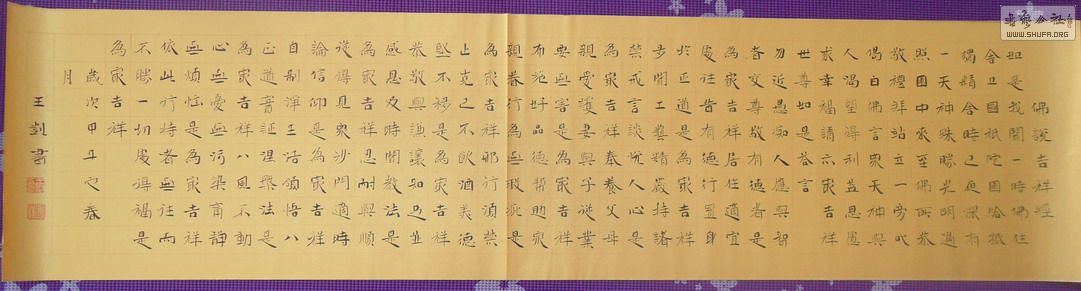 佛說吉祥經
如是我聞一時佛住
舍卫國祇陀園給孤
獨精舍時之夜深有
一天神殊勝光明遍
照園中來至佛所恭
敬禮拜站立一旁以
偈白佛言眾天神與
人渴望得利益思慮
求幸福請示眾吉祥
世尊答言
勿近愚痴人應與智
者交近尊敬有德者是
為眾吉祥居住適宜
處往昔有德行置身
於正道是為眾吉祥
多聞工藝精嚴持諸
禁戒言談悅人心是
為眾吉祥奉養父母
親愛護妻與子從業
要無害是為眾吉祥
布施好品德幫助眾
親眷行為無瑕疵是
為眾吉祥邪行須禁
止克己不飲酒美德
堅不移是為眾吉祥
恭敬與謙讓知足並
感恩及時聞教法是
為眾吉祥忍耐與順
從得見眾沙門適時
論信仰是為眾吉祥
自制淨生活領悟八
正道實證涅槃法是
為眾吉祥八風不動
心無憂無污染寧靜
無煩惱是為眾吉祥
依此行持者無往而
不勝一切處得福是
為眾吉祥
歲次甲午之春
月
王釗書
書藝公社
WWW.SHUFA.ORG